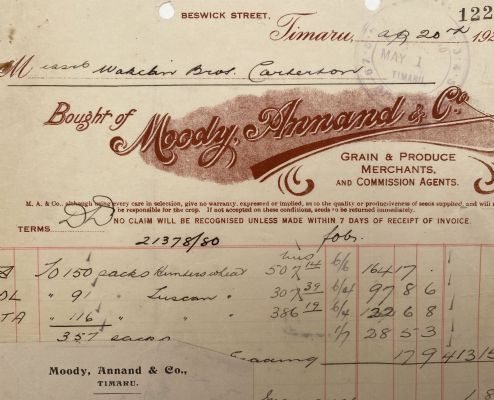 BESWICK STREET,
122
Timaru, ap 20th 192
MAY 1
TIMARU
Messrs Wakelin Bros. Carterton
Bought of Moody, Annand & Co.,
GRAIN & PRODUCE
MERCHANTS,
AND COMMISSION AGENTS.
M. A. & Co., although using every care in selection, give no warranty, expressed or implied, as to the quality or productiveness of seeds supplied, and will n
be responsible for the crop. If not accepted on these conditions, seeds to be returned immediately.
NO CLAIM WILL BE RECOGNISED UNLESS MADE WITHIN 7 DAYS OF RECEIPT OF INVOICE.
TERMS
21378/80 fob.
A To 150 sacks Hunters wheat 507 14 6/6 164 17 .
OL " 91 " Tuscan " 307 39 97 8 6
TA " 116 " " " 386 19 6/4 122 6 8
357 sacks 1/7 28 5 3
179 413
Moody, Annand & Co.,
TIMARU.